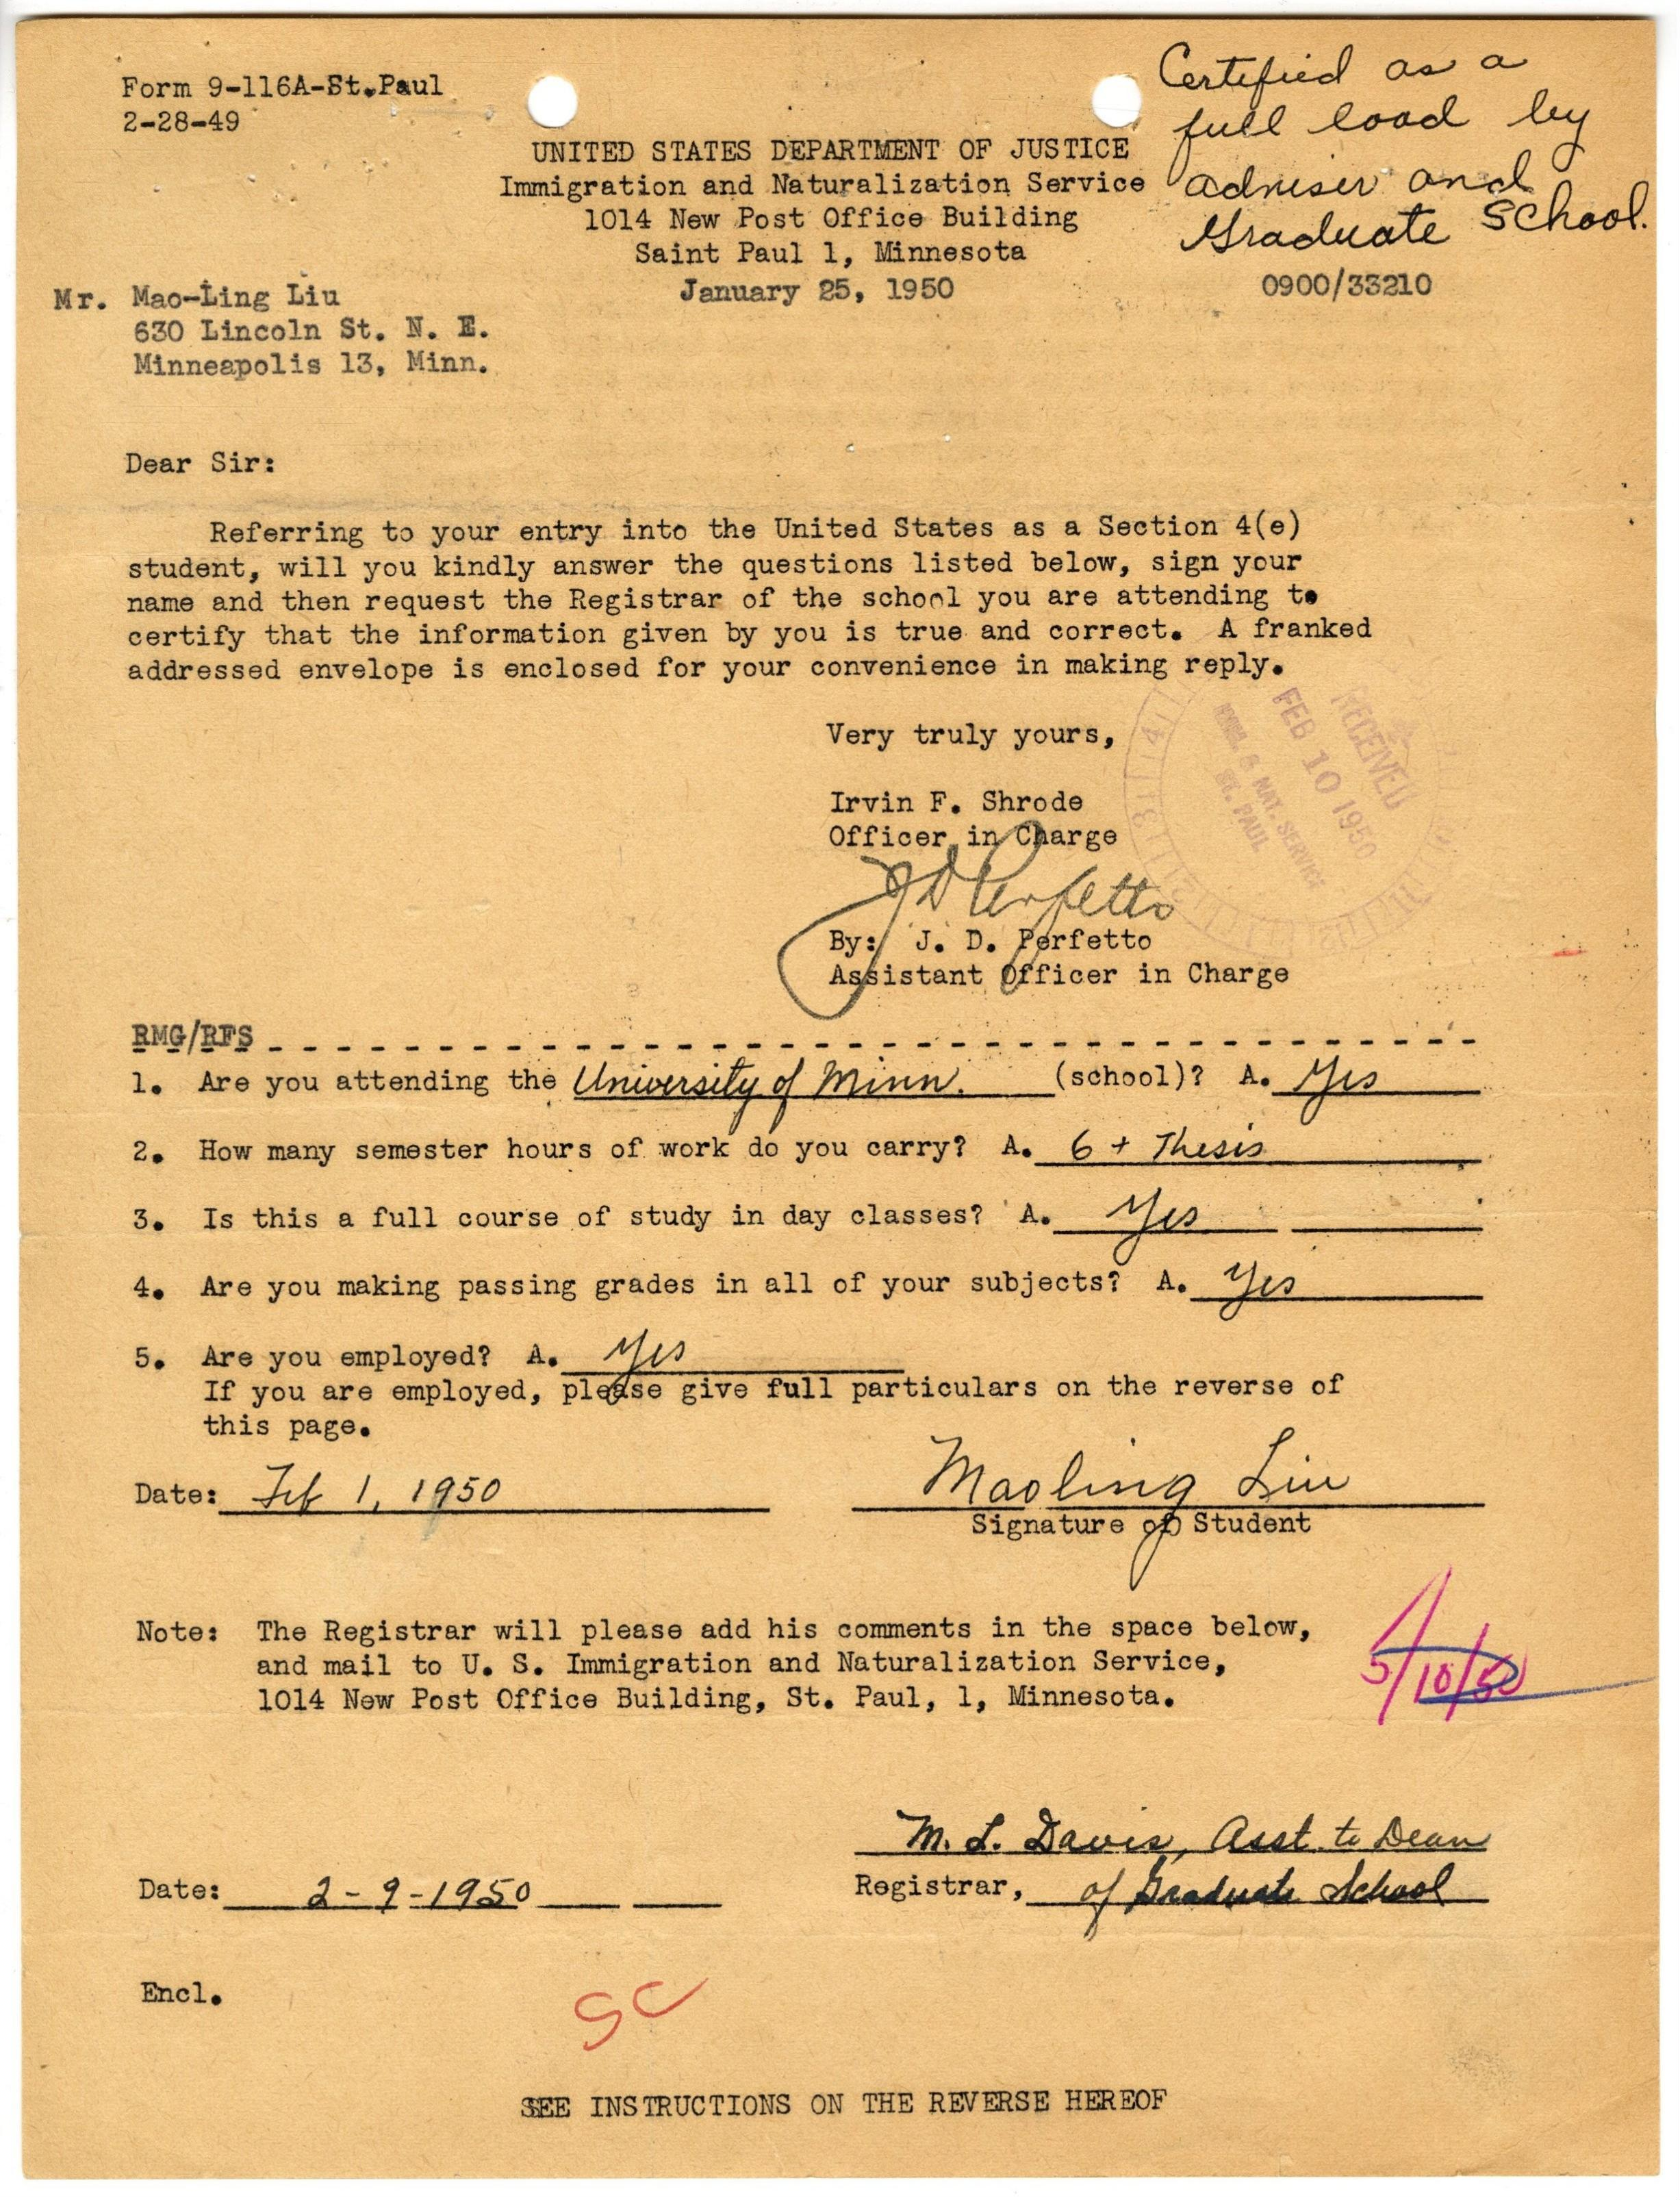 Form 9-116A-St.Paul
2-28-49
Certified as a
full load by
adviser and
Graduate School.
UNITED STATES DEPARTMENT OF JUSTICE
Immigration and Naturalization Service
1014 New Post Office Building
Saint Paul 1, Minnesota
January 25, 1950
0900/33210
Mr. Mao-Ling Liu
630 Lincoln St. N. E.
Minneapolis 13, Minn.
Dear Sir:
Referring to your entry into the United States as a Section 4(e)
student, will you kindly answer the questions listed below, sign your
name and then request the Registrar of the school you are attending to
certify that the information given by you is true and correct. A franked
addressed envelope is enclosed for your convenience in making reply.
Very truly yours,
RECEIVED
FEB 10 1950
IMMI. & NAT. SERVICE
ST. PAUL
Irvin F. Shrode
Officer in Charge
J D Perfetto
By: J. D. Perfetto
Assistant Officer in Charge
RMG/RFS
1. Are you attending the University of Minn. (school)? A. Yes
2. How many semester hours of work do you carry? A. 6 + Thesis
3. Is this a full course of study in day classes? A. Yes
4. Are you making passing grades in all of your subjects? A. Yes
5. Are you employed? A. Yes
If you are employed, please give full particulars on the reverse of
this page.
Date: Feb 1, 1950
Maoling Liu
Signature of Student
Note: The Registrar will please add his comments in the space below,
and mail to U. S. Immigration and Naturalization Service,
1014 New Post Office Building, St. Paul, 1, Minnesota.
5/10/50
M. L. Davis, Asst. to Dean
Date: 2-9-1950
Registrar, of Graduate School
Encl.
SC
SEE INSTRUCTIONS ON THE REVERSE HEREOF